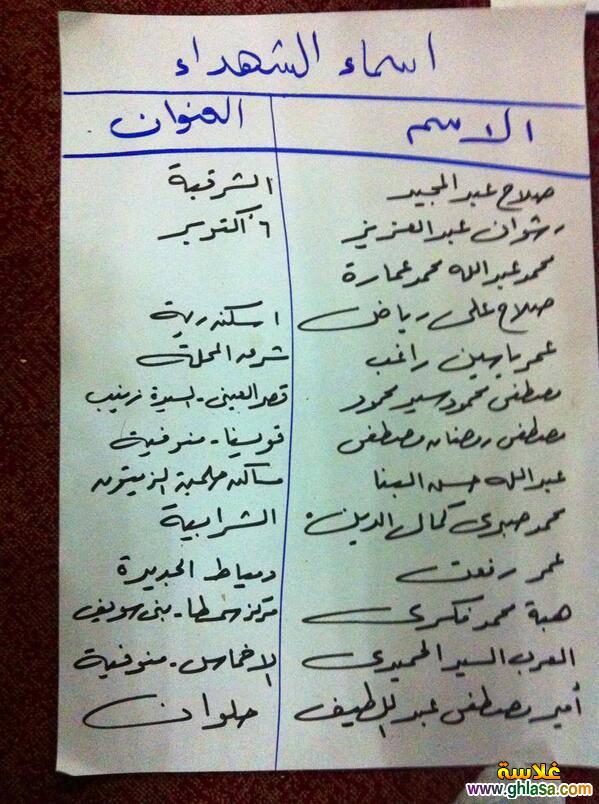 اسماء الشهداء
الاسم العنوان
صلاح عبد المجيد الشرقية
رشوان عبد العزيز ٦ اكتوبر
محمد عبد الله محمد عمارة
صلاح على رياض اسكندرية
عمر ياسين راغب شرق المحلة
مصطفى محمود سيد محمود قصر العينى - السيدة زينب
مصطفى رمضان مصطفى قويسنا - منوفية
عبد الله حسن البنا مساكن حلمية الزيتون
محمد صبرى كمال الدين الشرابية
عمر رفعت دمياط الجديدة
هبة محمد فكرى مركز سمسطا - بنى سويف
العرب السيد الحميدى الاخماس - منوفية
أمير مصطفى عبد اللطيف حلوان
غلاسة
www.ghlasa.com